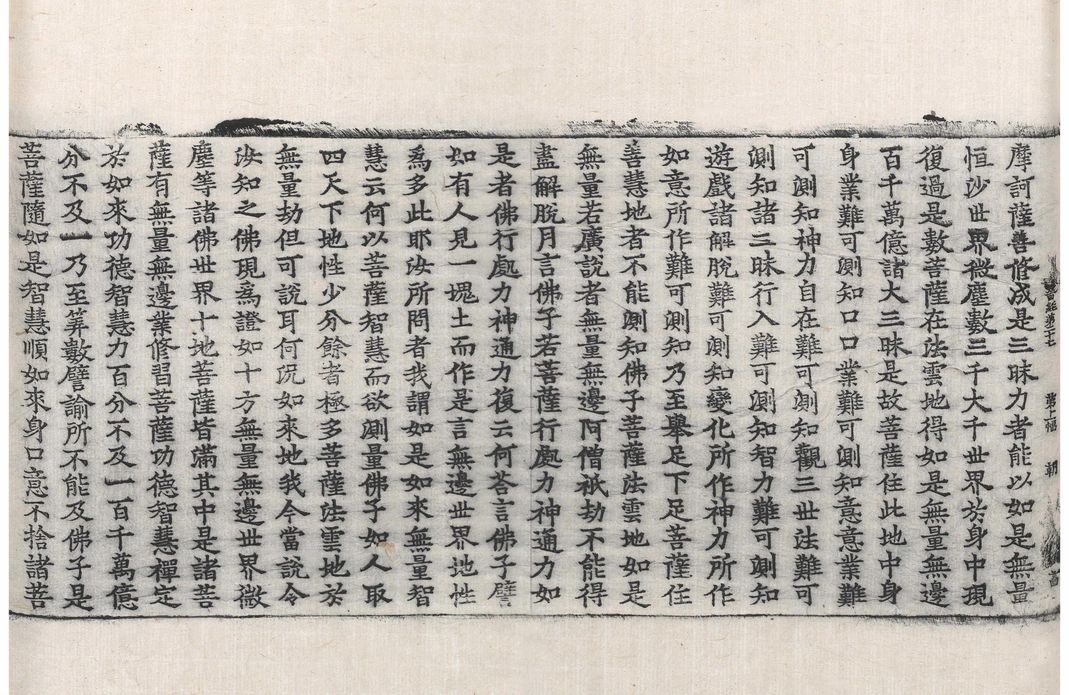 摩訶薩善修成是三昧力者能以如是無量
恒沙世界微塵數三千大千世界於身中現
復過是數菩薩在法雲地得如是無量無邊
百千萬億諸大三昧是故菩薩住此地中身
身業難可測知口口業難可測知意意業難
可測知神力自在難可測知觀三世法難可
測知諸三昧行入難可測知智力難可測知
遊戲諸解脫難可測知變化所作神力所作
如意所作難可測知乃至舉足下足菩薩住
善慧地者不能測知佛子菩薩法雲地如是
無量若廣說者無量無邊阿僧祇劫不能得
盡解脫月言佛子若菩薩行處力神通力如
是者佛行處力神通力復云何荅言佛子譬
如有人見一塊土而作是言無邊世界地性
爲多此耶汝所問者我謂如是如來無量智
慧云何以菩薩智慧而欲測量佛子如人取
四天下地性少分餘者極多菩薩法雲地於
無量劫但可說耳何況如來地我今當說令
汝知之佛現爲證如十方無量無邊世界微
塵等諸佛世界十地菩薩皆滿其中是諸菩
薩有無量無邊業修習菩薩功德智慧禪定
於如來功德智慧力百分不及一百千萬億
分不及一乃至筭數譬諭所不能及佛子是
菩薩隨如是智慧順如來身口意不捨諸菩